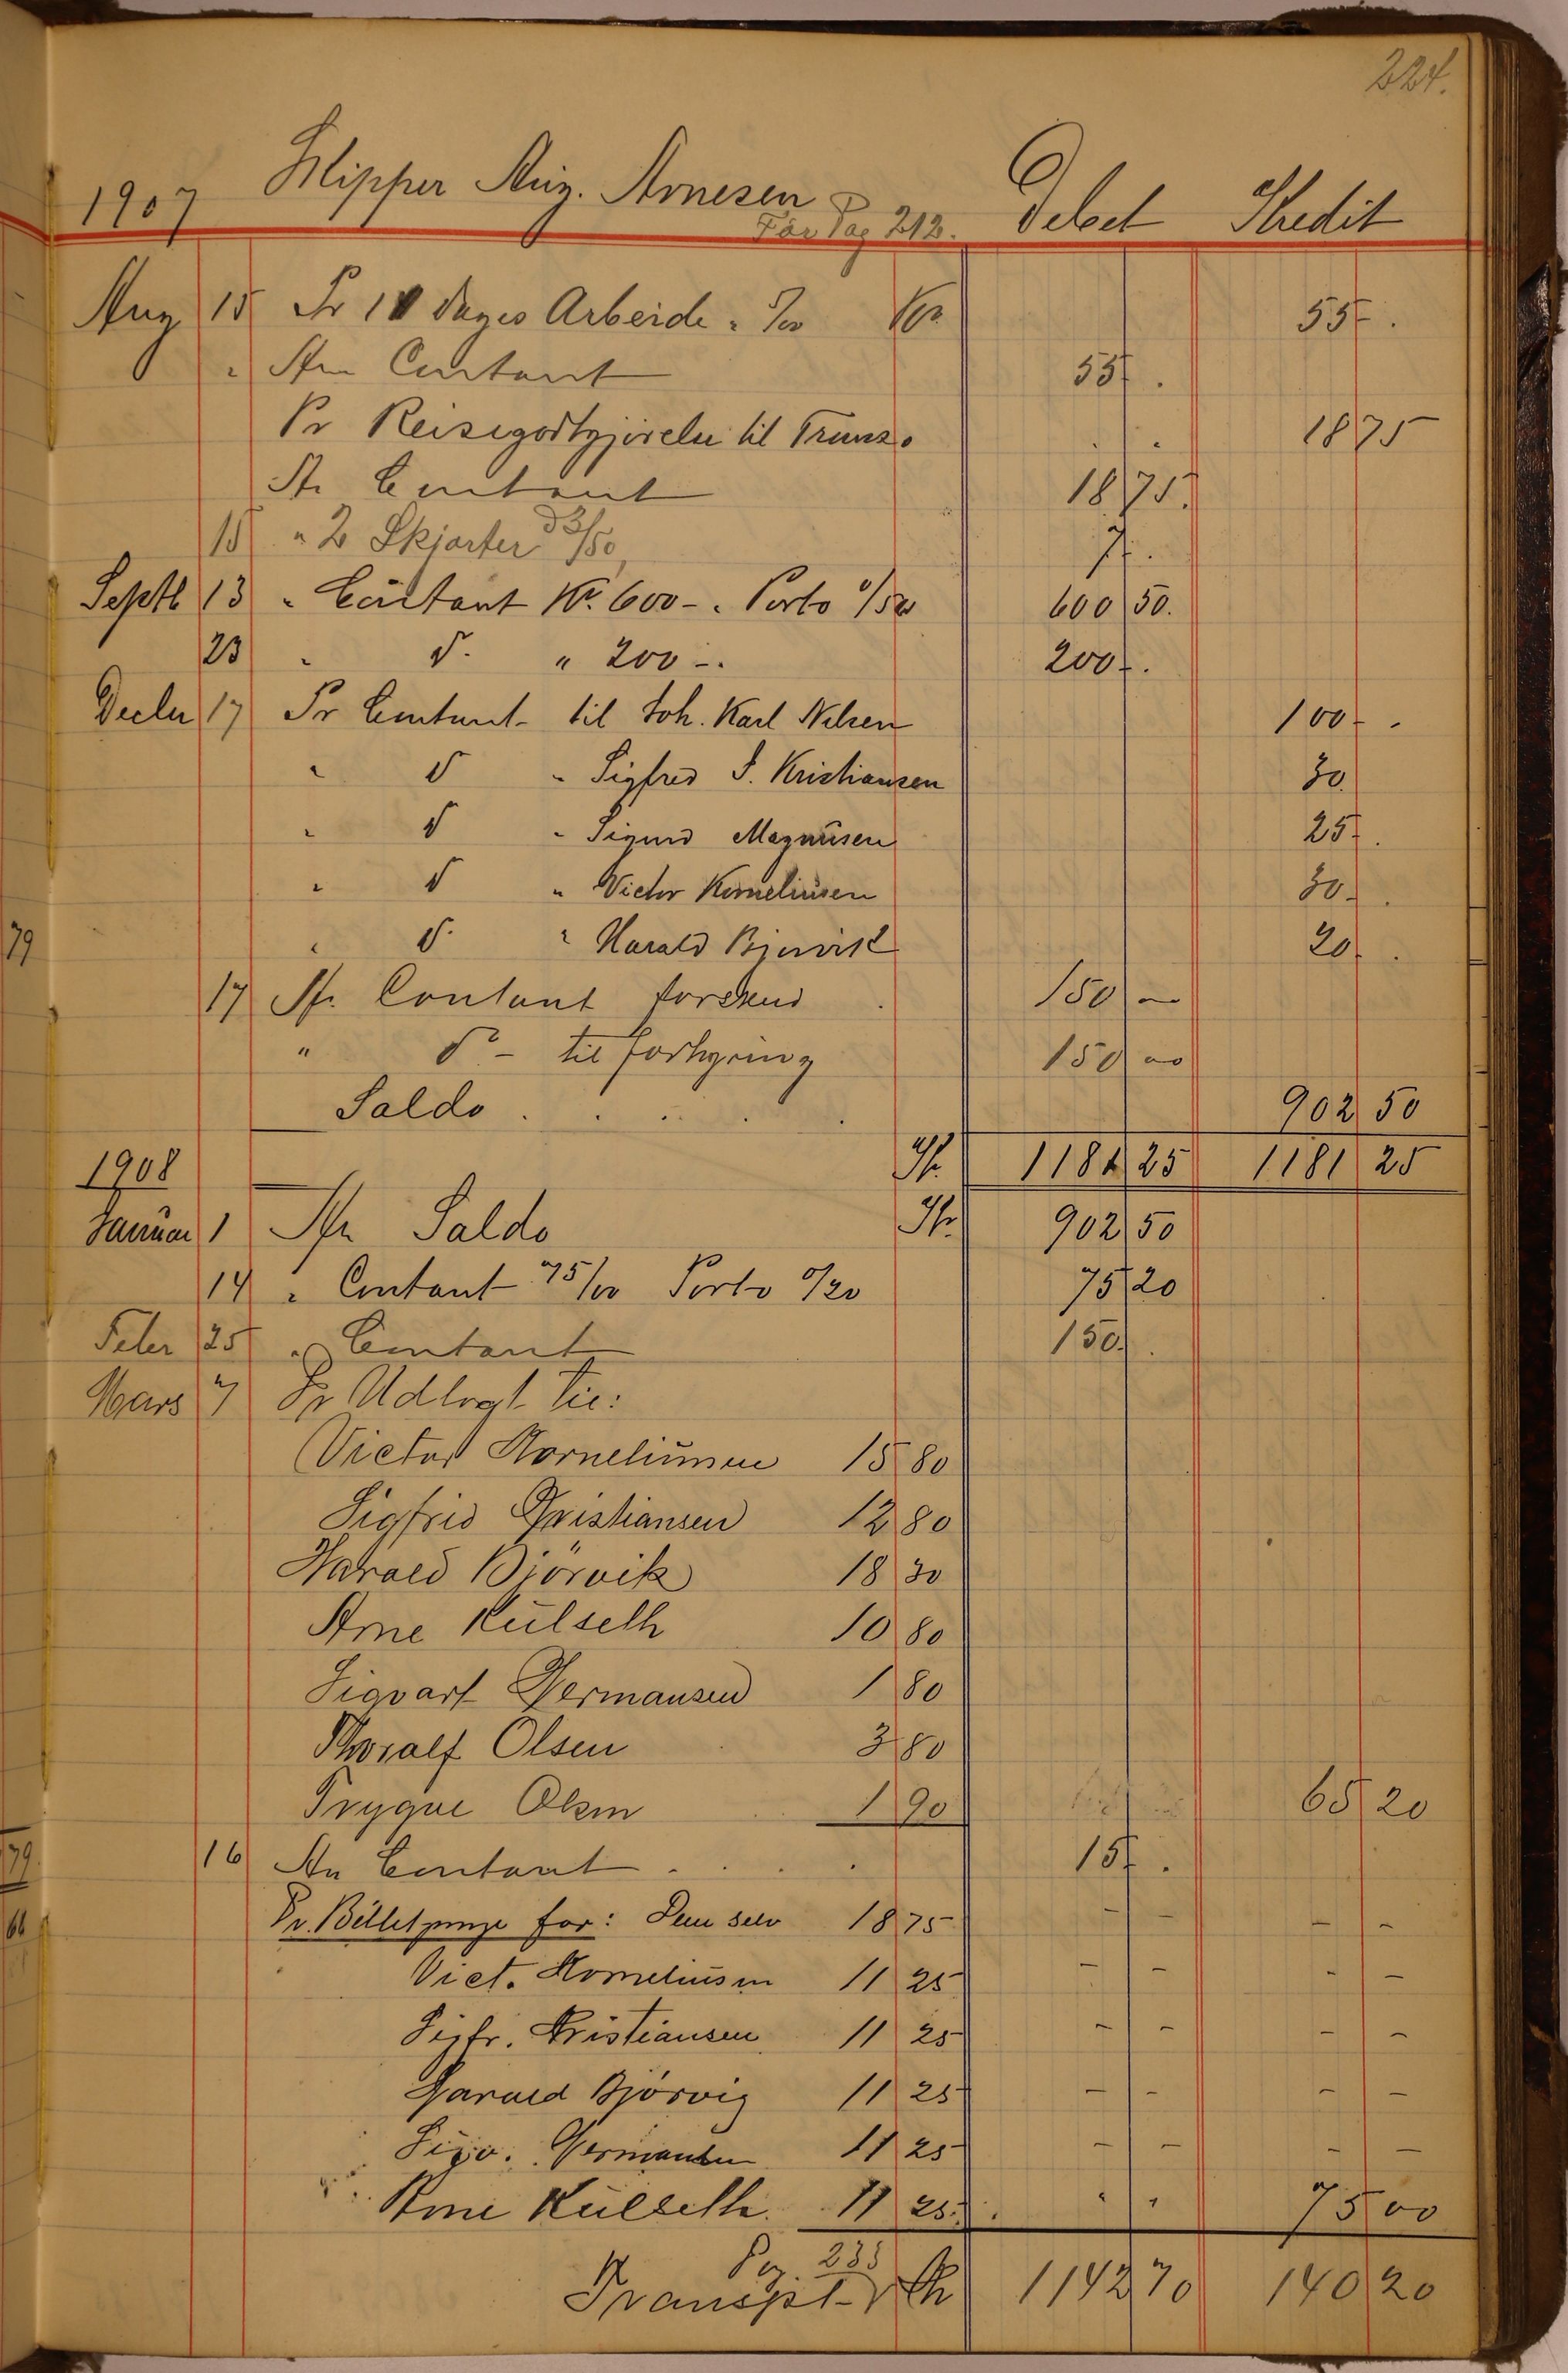 224.
1907 Skipper Aug. Arnesen Debet Kredit
Fór Pag 212.
Aug 15 Pr 11 dages Arbeide " 5/00 Kr. 55 - .
" An Contant 55 - .
Pr Reisegodtgjörelse til Tromsö . . 18 75
An Contant 18 75.
15 " 2 Skjorter à 3/50, 7 - .
Septb 13 " Contant Kr. 600 - . Porto 0/50 600 50.
23 " do. " 200 - . 200 - .
Decbr 17 Pr Contant til Joh. Karl Nilsen 100 - .
" do " Sigfred J. Kristiansen 30.
" do " Sigurd Magnüsen 25 - .
" do " Victor Korneliüsen 30 - .
" do. " Harald Bjervik 20 - .
17 An Contant forskud 150 00
" do - til forhyring 150 00
Saldo . . . . . 902 50
Kr. 1181 25 1181 25
1908
Januar 1 An Saldo Kr. 902 50
14 " Contant 75/00 Porto 0/20 75 20
Feber 25 " Contant 150 - .
Mars 7 Pr Udlagt til:
Victor Korneliüsen 15 80
Sigfrid Kristiansen 12 80
Harald Björvik 18 30
Arne Külseth 10 80
Sigvart Hermansen 1 80
Thoralf Olsen 3 80
Trygve Olsen 1 90 65 20
16 An Contant . . . . 15 - .
Pr. Billetpenge for: Dem selv 18 75 - - - -
Vict. Korneliüsen 11 25 - - - -
Sigfr. Kristiansen 11 25 - - - -
Harald Björvig 11 25 - - - -
Sigv. Hermansen 11 25 - - - -
Arne Külseth. 11 25. " " 75 00
Pag. 233
Transpt Kr 1142 70 140 20
79
79
66